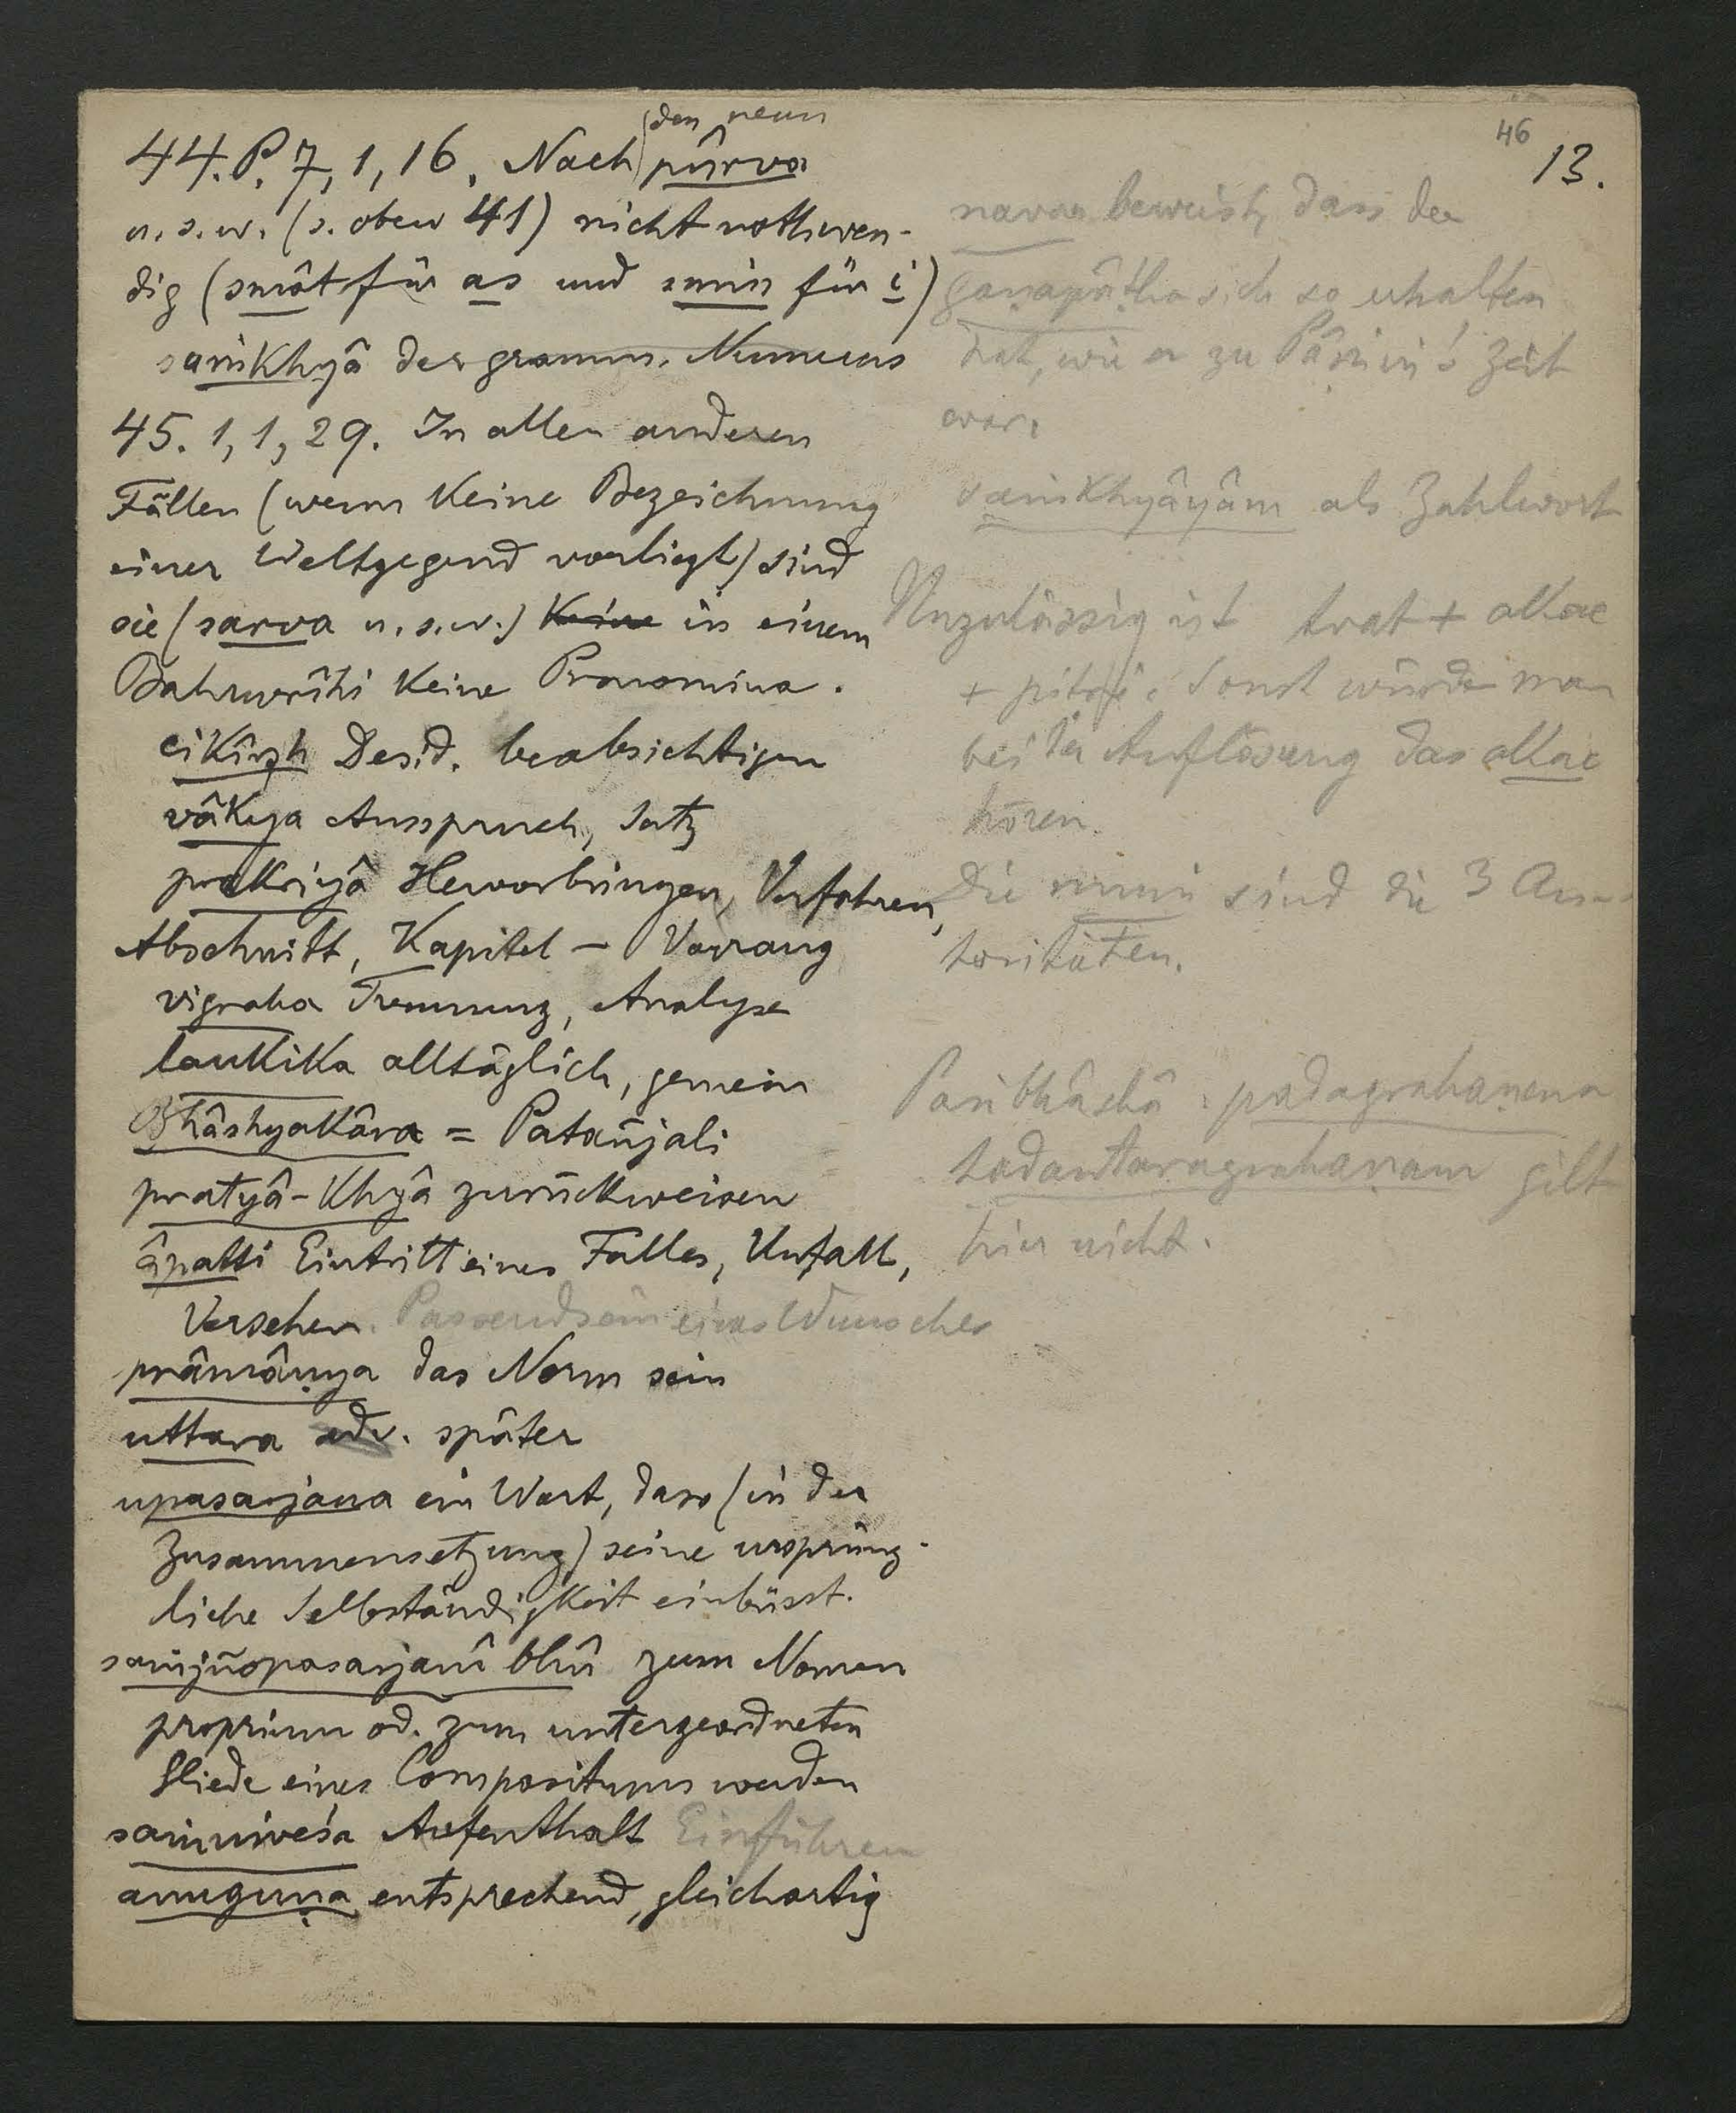 46
13.
den neun
44. P. 7, 1, 16. Nach pûrva
u. s. w. (s. oben 41) nicht nothwen-
dig (smât für as und smin für i)
saṁkhyâ der gramm. Numerus
45. 1, 1, 29. In allen anderen
Fällen (wenn keine Bezeichnung
einer Weltgegend vorliegt) sind
sie (sarva u. s. w.) keine in einem
Bahuvrîhi keine Pronomina.
cikîrsh Desid. beabsichtigen
vâkya Ausspruch, Satz
prakriyâ Hervorbringen, Verfahren,
Abschnitt, Kapitel – Vorrang
vigraha Trennung, Analyse
laukika alltäglich, gemein
Bhâshyakâra = Patañjali
pratyâ-khyâ zurückweisen
âpatti Eintritt eines Falles, Unfall,
Versehen. Passendsein eines Wunsches
prâmâṇya das Norm sein
uttara adv. später
upasarjana ein Wort, dass (in der
Zusammensetzung) seine ursprüng-
liche Selbständigkeit einbüsst.
saṁjñopasarjanî bhû zum Nomen
proprium od. zum untergeordneten
Gliede eines Compositums werden
saṁniveśa Aufenthalt Einführen
anuguṇa entsprechend, gleichartig
beweist, dass der
gaṇapâṭha sich so erhalten
hat, wie er zu Pâṇini's Zeit
war.
saṁkhyâyâm als Zahlwort
Unzulässig ist tvat + akac
+ pitṛi. Sonst würde man
bei der Auflösung das akac
hören.
Die muni sind die 3 Au-
toritäten.
Paribhâshâ: padagrahaṇena
tadantaragrahaṇam gilt
hier nicht.